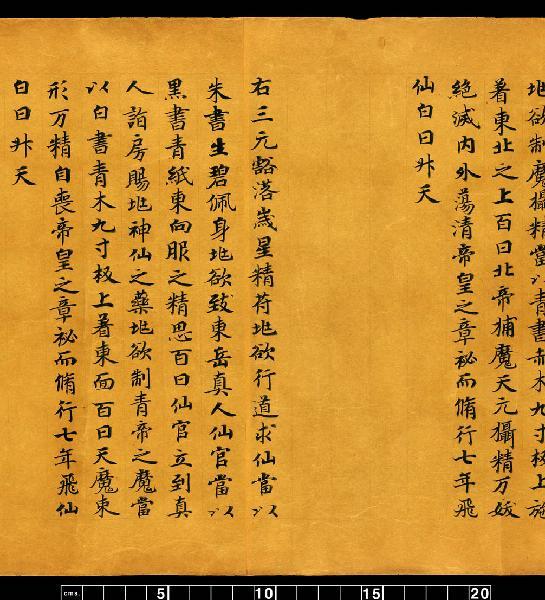 地欲制魔攝精當以青書赤木九寸板上施
著東北之上百日北帝捕魔天元攝精万妖
絶滅内外蕩清帝皇之章祕而脩行七年飛
仙白日升天
右三元豁落歲星精符地欲行道求仙當以
朱書生碧佩身地欲致東岳真人仙官當以
黑書青紙東向服之精思百日仙官立到真
人詣房賜地神仙之藥地欲制青帝之魔當
以白書青木九寸板上著東面百日天魔束
形万精自喪帝皇之章祕而脩行七年飛仙
白日升天